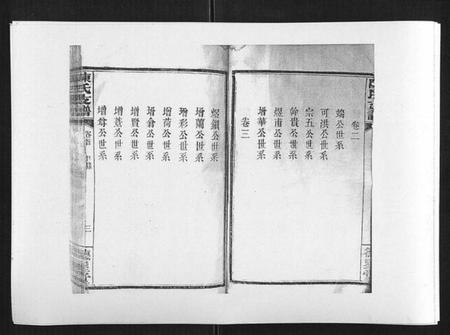 卷二
端公世系
可洪公世系
宗五公世系
幹貴公世系
煜甫公世系
增華公世系
卷三
煜鎮公世系
增蘭公世系
增彩公世系
增荷公世系
增倉公世系
增賢公世系
增萱公世系
增舜公世系
陳氏支譜
卷首
目錄
三